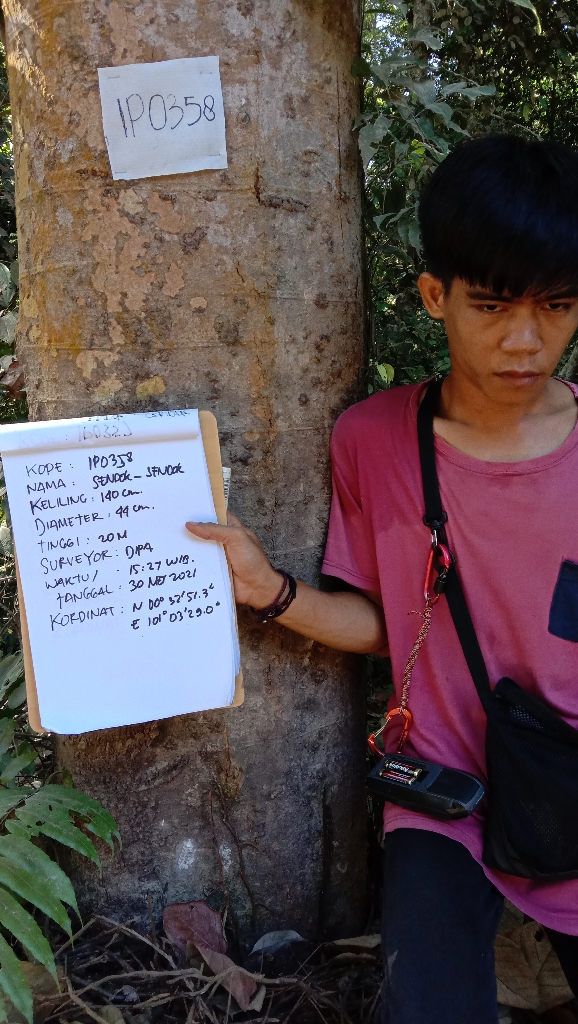 IP0358
KODE : IP0358
NAMA : SENDOK-SENDOK
KELILING : 140 cm.
DIAMETER : 44 cm.
TINGGI : 20 M
SURVEYOR : DIPA
WAKTU/ : 15:27 WIB.
TANGGAL : 30 MEI 2021
KORDINAT : N 00° 32'51.3"
E 101° 03'29.0"